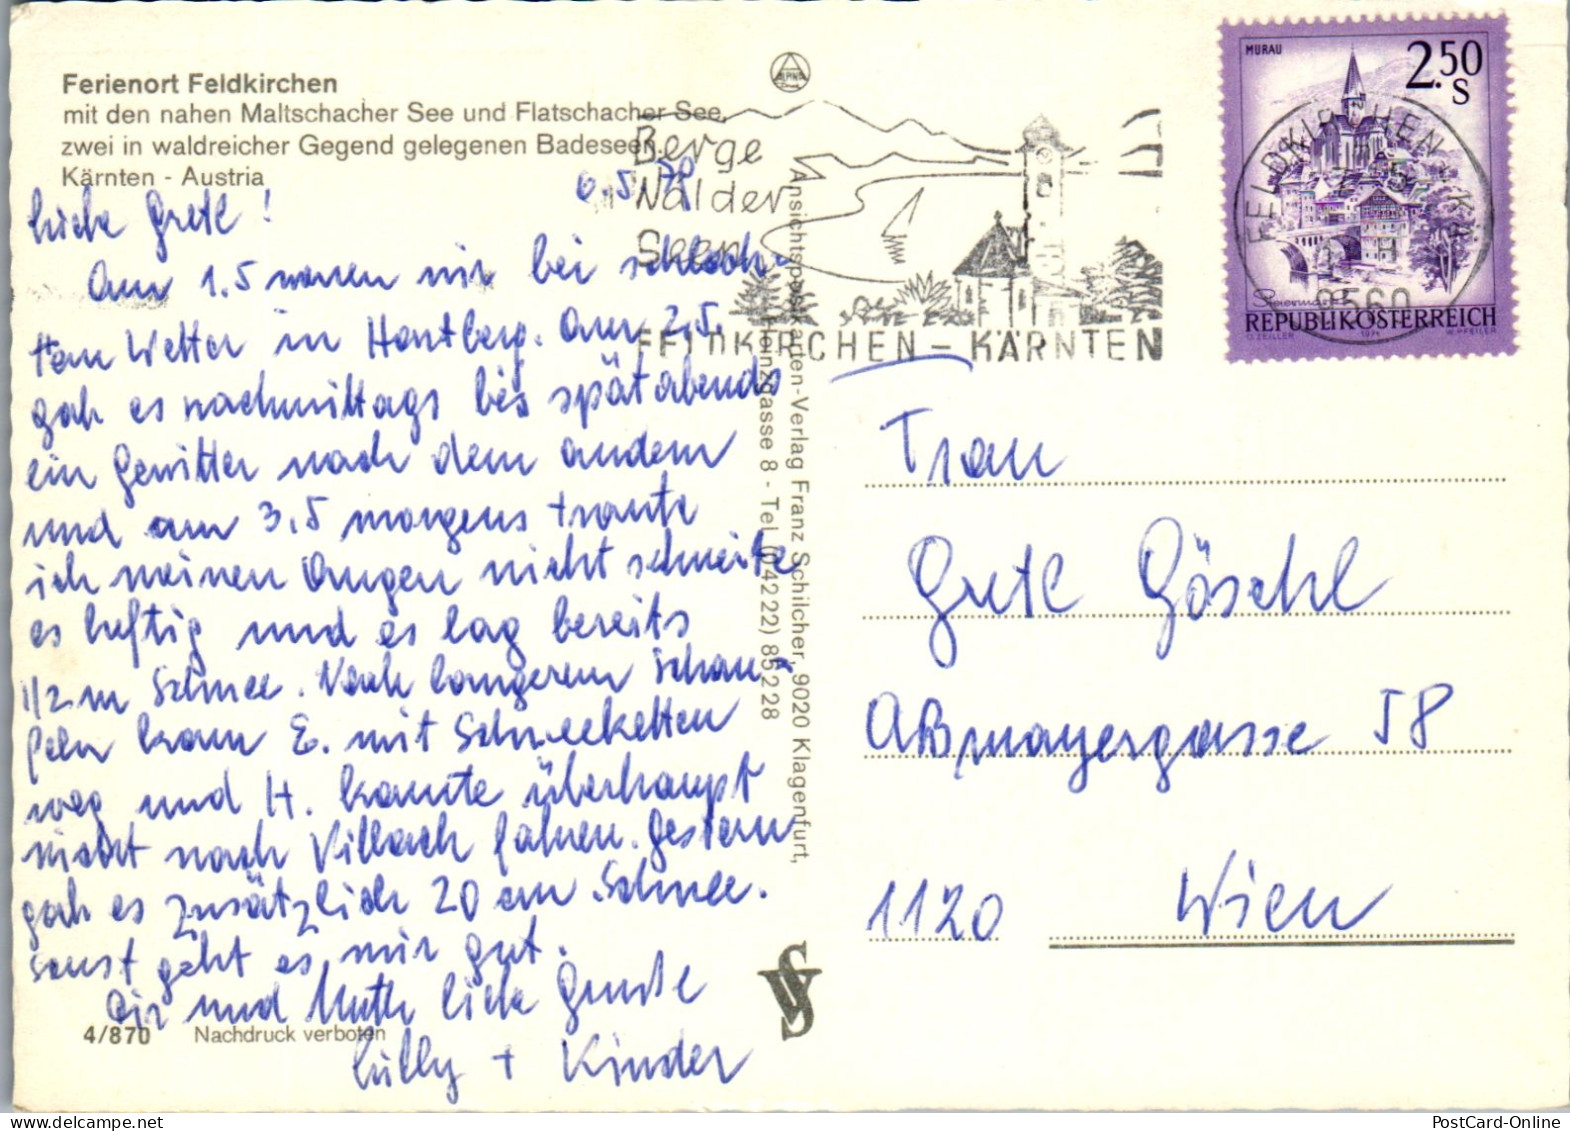 Ferienort Feldkirchen
mit den nahen Maltschacher See und Flatschacher See,
zwei in waldreicher Gegend gelegenen Badeseen.
Kärnten - Austria
6.5.79
Liebe Gretl!
Am 1.5 waren wir bei schlech-
tem Wetter in Hartberg. Am 2.5.
gab es nachmittags bis spät abends
ein Gewitter nach dem andern
und am 3.5 morgens traute
ich meinen Augen nicht schneite
es heftig und es lag bereits
1/2 m Schnee. Nach langerem Schau-
feln kam E. mit Schneeketten
weg und H. konnte überhaupt
nicht nach Villach fahren. Gestern
gab es zusätzlich 20 cm Schnee.
Sonst geht es mir gut.
Dir und Mutti liebe Grüße
Lilly + Kinder
4/870 Nachdruck verboten
Ansichtspostkarten-Verlag Franz Schilcher, 9020 Klagenfurt,
Heinzgasse 8 - Tel. (04222) 85228
SV
Berge
Wälder
Seen
FELDKIRCHEN - KÄRNTEN
MURAU
2.50
S
Steiermark
REPUBLIK ÖSTERREICH
O. ZEILLER 1974 W. PFEILER
FELDKIRCHEN * KÄ
9560
Frau
Gretl Göschl
Aßmayergasse 58
1120 Wien
PostCard-Online
www.delcampe.net